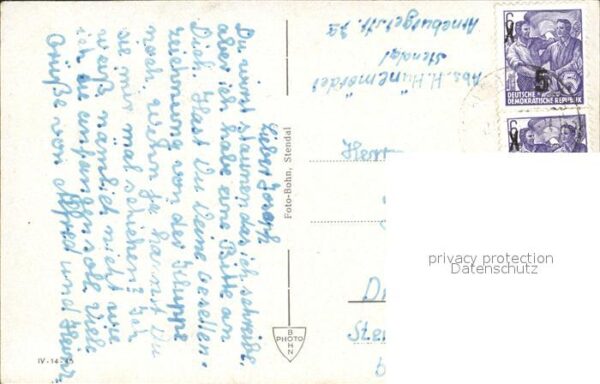 Lieber Joseph
Du wirst staunen das ich schreibe,
aber ich habe eine Bitte an
Dich. Hast Du Deine Gesellen-
zeichnung von der Kluppe
noch, wenn ja kannst Du
sie mir mal schicken? Ich
weiß nämlich nicht wie
ich die anfangen soll. Viele
Grüße von Alfred und Heinz
Abs. H. Hünemörder
Stendal
Arneburger Str.
Herrn
D
Sten
Foto-Bohn, Stendal
BOHN
PHOTO
IV-14-45
5
DEUTSCHE
DEMOKRATISCHE REPUBLIK
privacy protection
Datenschutz